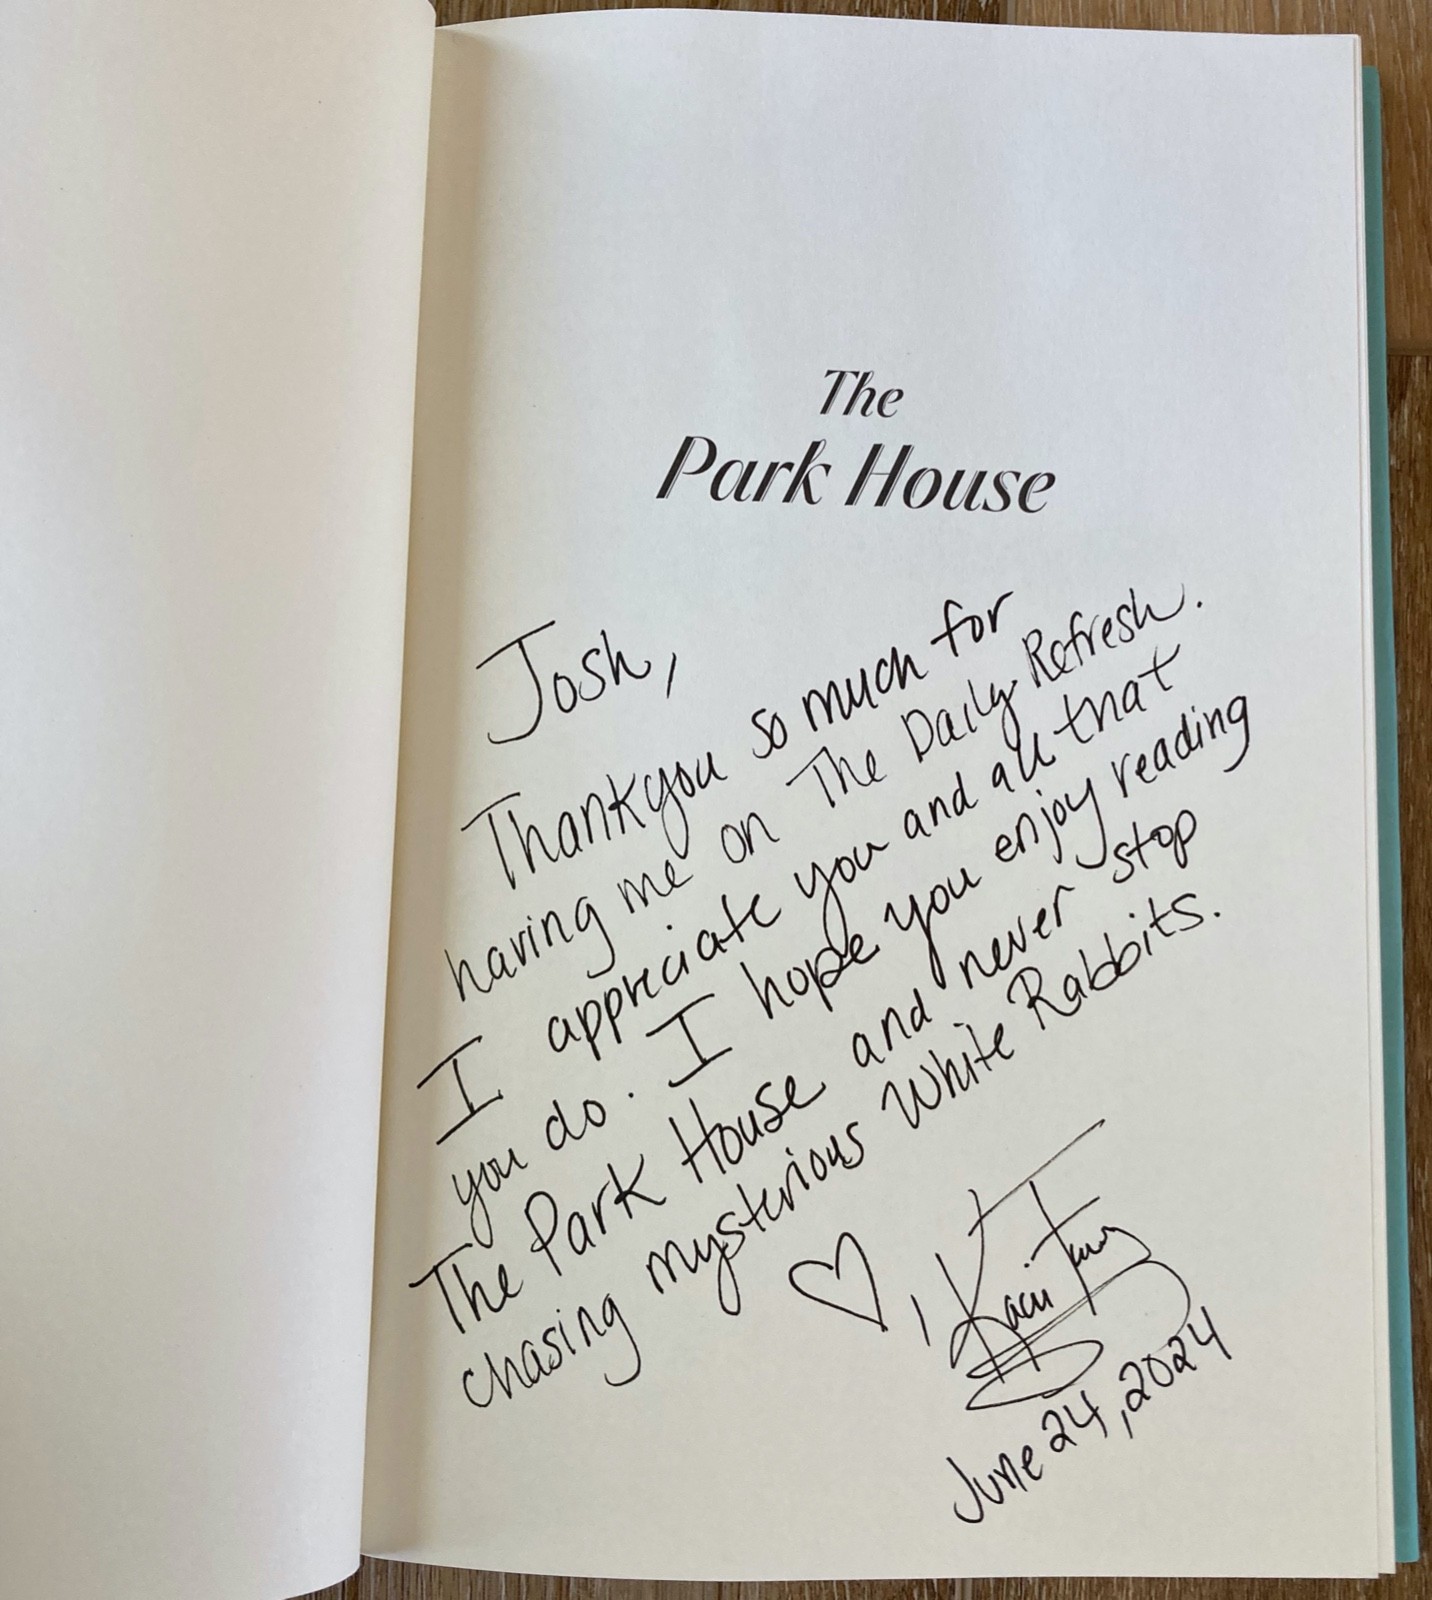 The
Park House
Josh,
Thankyou so much for
having me on The Daily Refresh.
I appreciate you and all that
you do. I hope you enjoy reading
The Park House and never stop
chasing mysterious White Rabbits.
♡, Kacii
June 24, 2024